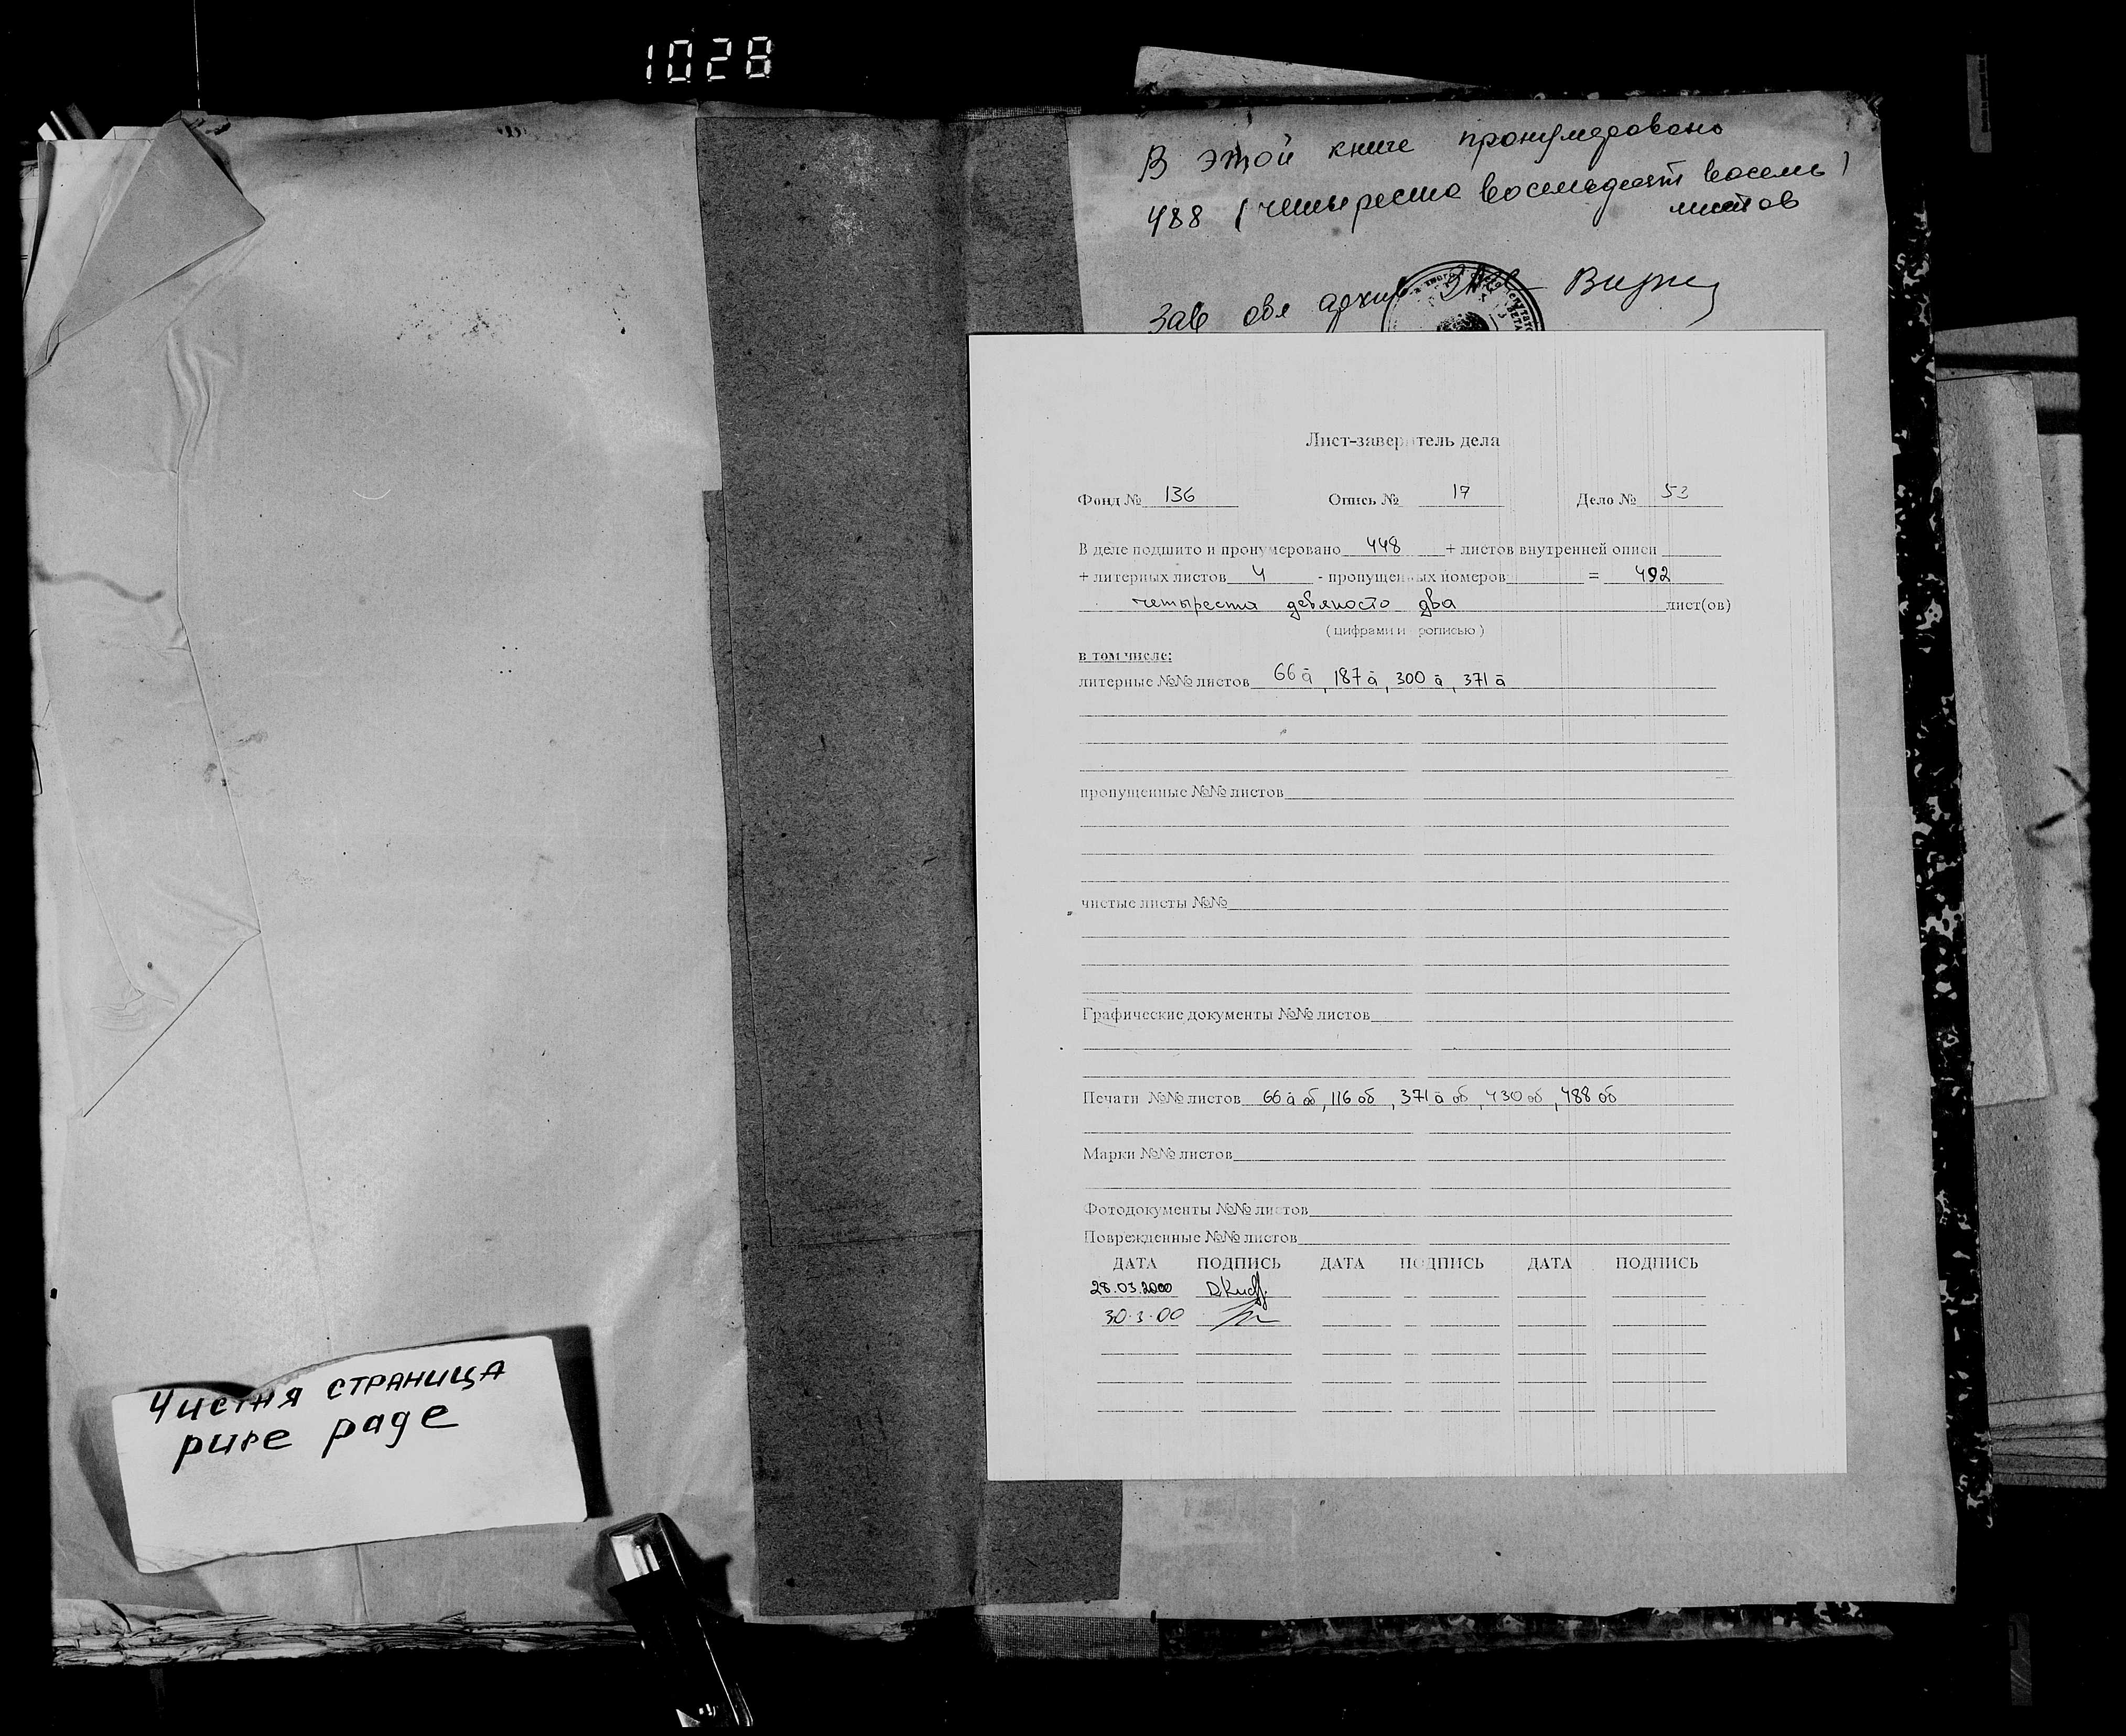 1028
В этой книге пронумеровано
488 (четыреста восемьдесят восемь)
листов
Зав обл архив
Лист-заверитель дела
Фонд № 136 Опись № 17 Дело № 53
В деле подшито и пронумеровано 448 + листов внутренней описи
+ литерных листов 4 - пропущенных номеров = 492
четыреста девяносто два лист(ов)
(цифрами и прописью)
в том числе:
литерные №№ листов 66 а, 187 а, 300 а, 371 а
пропущенные №№ листов
чистые листы №№
Графические документы №№ листов
Печати №№ листов 66 а об, 116 об, 371 а об, 430 об, 488 об
Марки №№ листов
Фотодокументы №№ листов
Поврежденные №№ листов
ДАТА ПОДПИСЬ ДАТА ПОДПИСЬ ДАТА ПОДПИСЬ
28.03.2000
30.3.00
Чистая страница
pure page